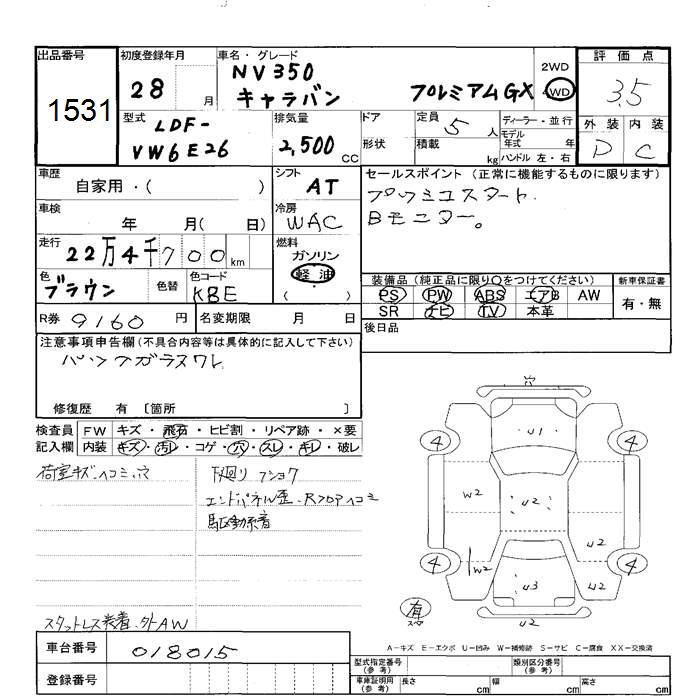 出品番号
1531
初度登録年月
28 月
車名・グレード
NV350
キャラバン プレミアムGX
2WD
4WD
評価点
3.5
外装 内装
D C
型式
LDF-
VW6E26
排気量
2,500 CC
ドア
形状
定員 5 人
積載 kg
ディーラー・並行
モデル
年式 年
ハンドル 左・右
車歴
自家用・( )
シフト
AT
車検
年 月( 日)
冷房
WAC
走行
22万4千700km
燃料
ガソリン
軽油
( )
色
ブラウン
色替
色コード
KBE
R券 9160 円
名変期限 月 日
セールスポイント(正常に機能するものに限ります)
プッシュスタート.
Bモニター。
装備品(純正品に限り○をつけてください)
PS PW ABS エアB AW
SR ナビ TV 本革
新車保証書
有・無
後日品
注意事項申告欄(不具合内容等は具体的に記入して下さい)
バックガラスワレ
修復歴 有 [箇所 ]
検査員 FW キズ・飛石・ヒビ割・リペア跡・×要
記入欄 内装 キズ・汚レ・コゲ・穴・スレ・キレ・破レ
荷室キズ・ヘコミ、穴
下廻リ フショク
エンドパネル歪・Rフロアヘコミ
駆動系着
スタットレス装着・外AW
穴
U1
4 4
W2 U2
U2
4 4
W2 U3 U2
有
スペ
U2
A-キズ E-エクボ U-凹み W-補修跡 S-サビ C-腐食 XX-交換済
車台番号 018015
登録番号
型式指定番号
(参考)
類別区分番号
(参考)
車庫証明用
(参考)
長さ cm 幅 cm 高さ cm